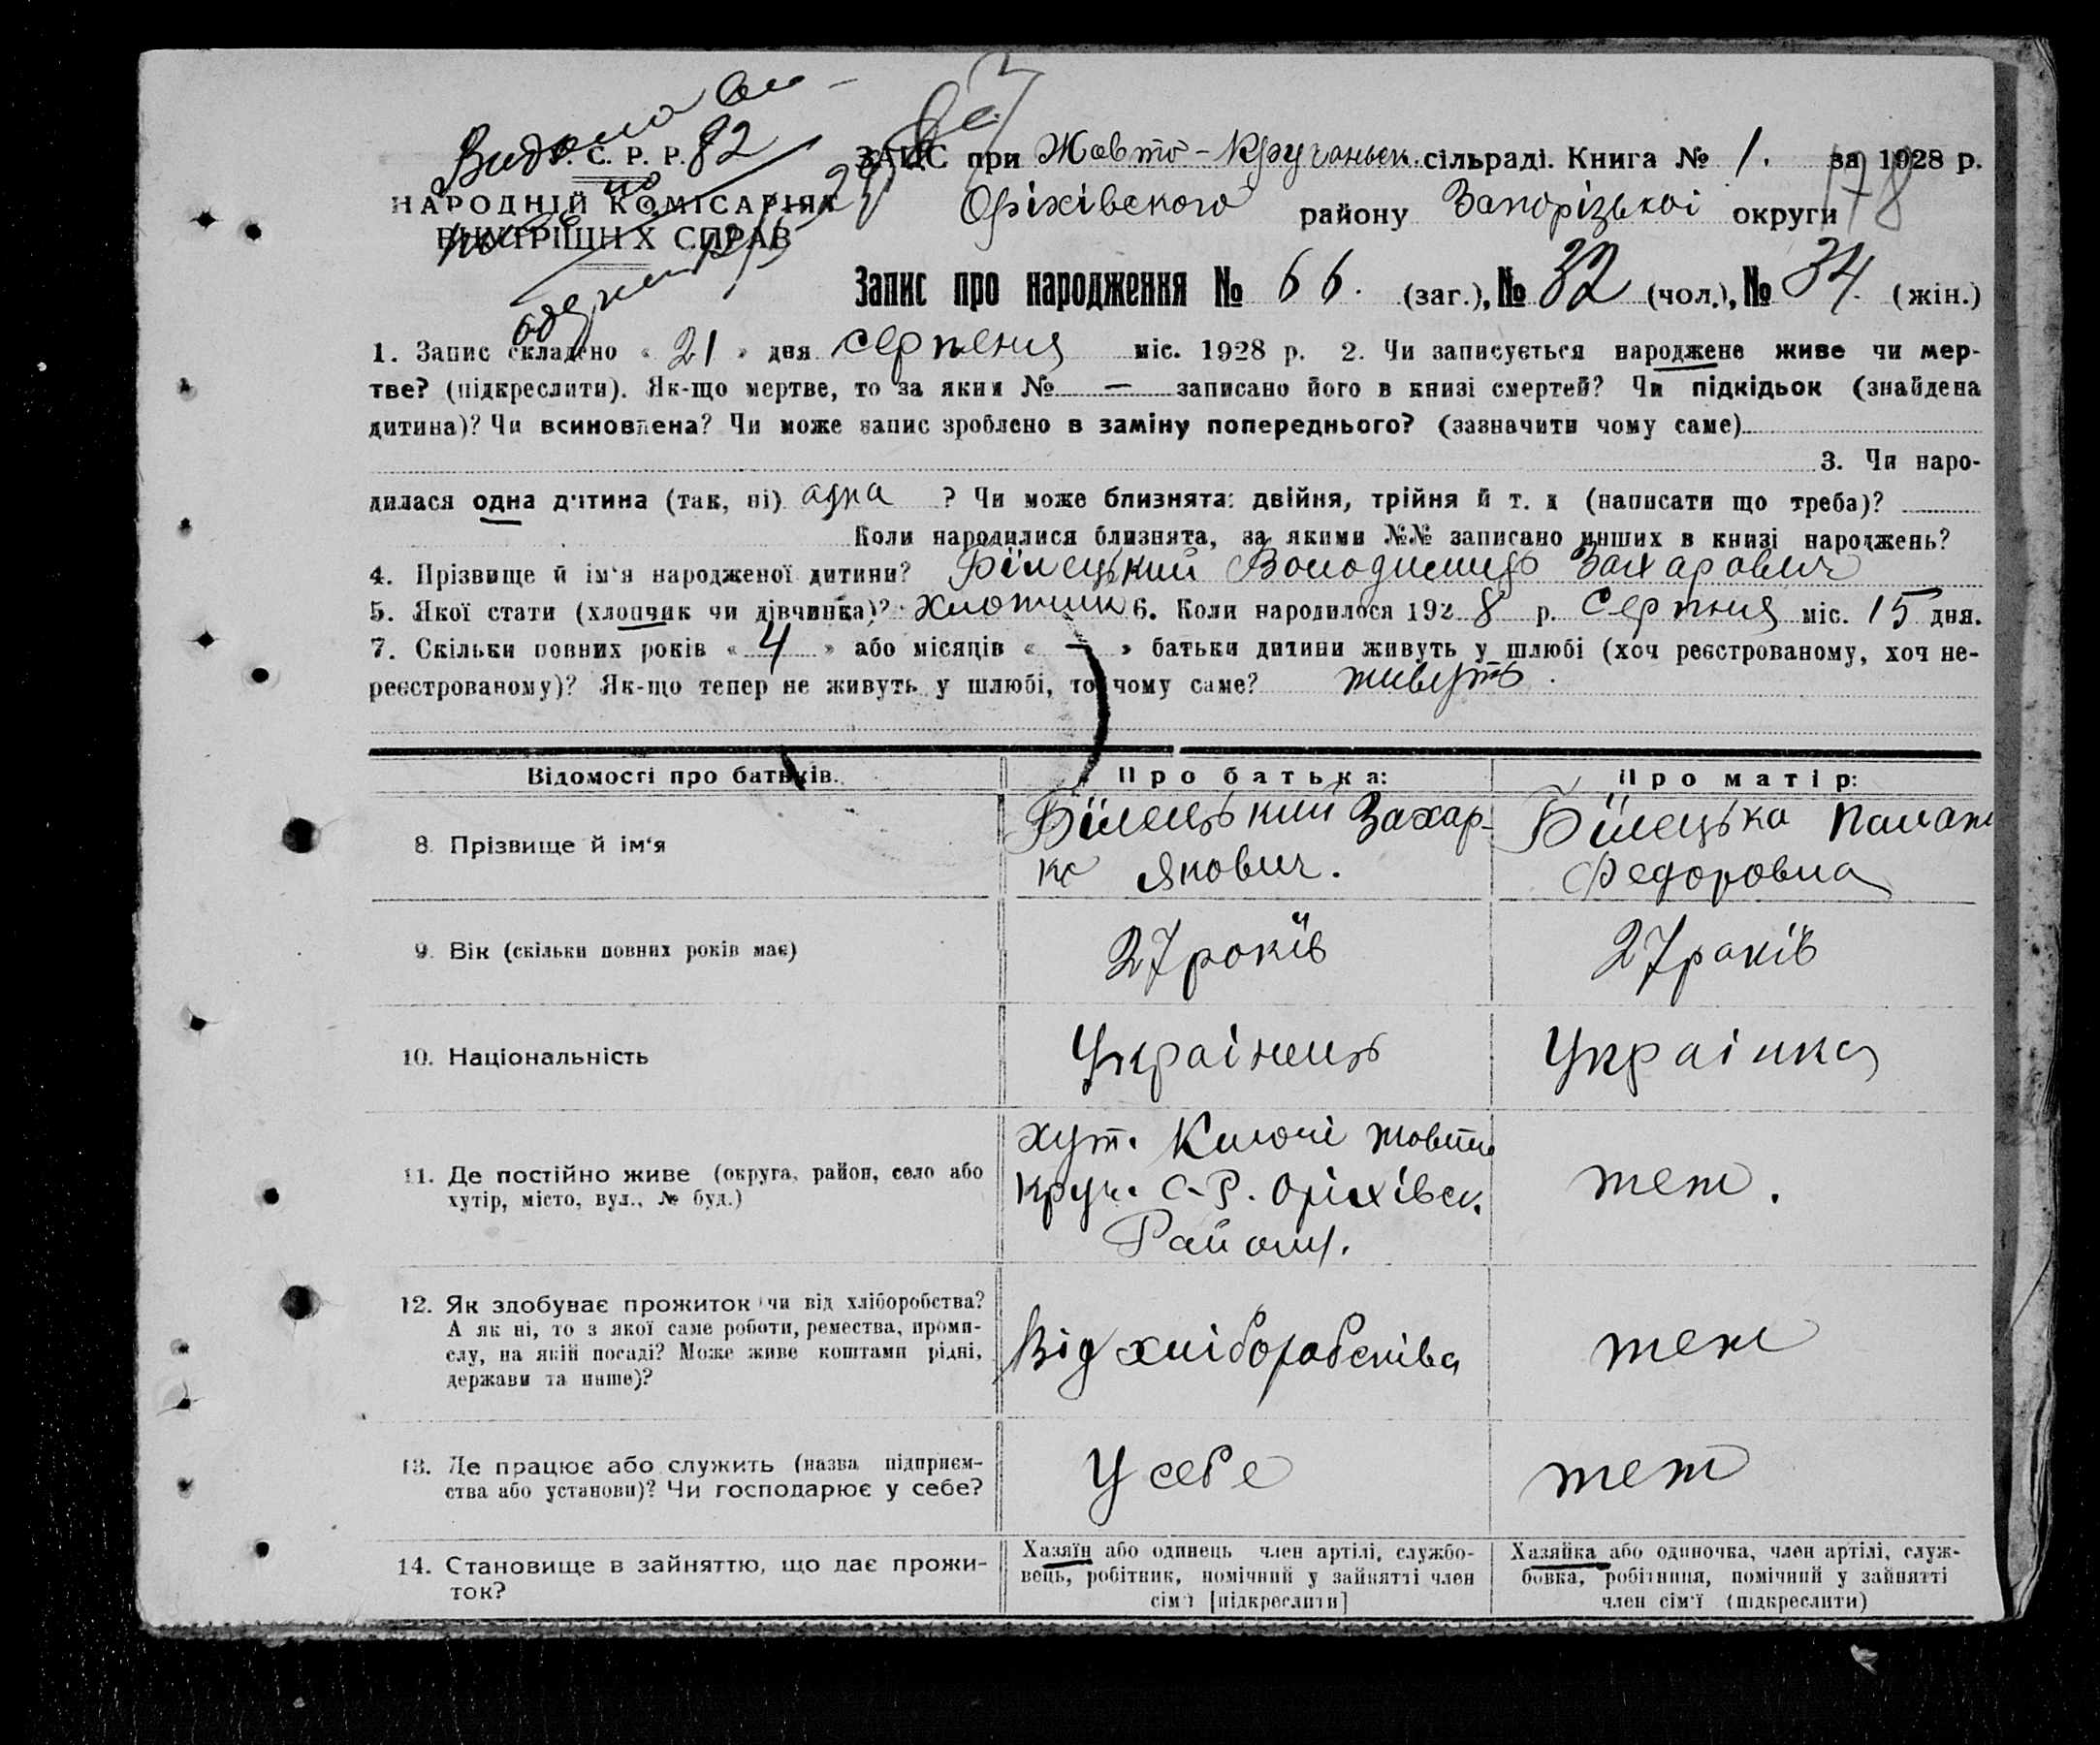 У. С. Р. Р. 82
НАРОДНІЙ КОМІСАРІЯТ
ВНУТРІШНІХ СПРАВ
ЗАПИС при Жовто-Кручаньск. сільраді. Книга № 1. за 1928 р.
Оріхівского району Запорізької округи
178
Запис про народження № 66. (заг.), № 32 (чол.), № 34. (жін.)
1. Запис складено « 21 » дня серпеня міс. 1928 р. 2. Чи записується народжене живе чи мер-
тве? (підкреслити). Як-що мертве, то за яким № — записано його в книзі смертей? Чи підкідьок (знайдена
дитина)? Чи всиновлена? Чи може запис зроблено в заміну попереднього? (зазначити чому саме)
3. Чи наро-
дилася одна дитина (так, ні) одна ? Чи може близнята: двійня, трійня й т. д (написати що треба)?
Коли народилися близнята, за якими №№ записано инших в книзі народжень?
4. Прізвище й ім'я народженої дитини? Білецький Володимир Захарович
5. Якої стати (хлопчик чи дівчинка)? Хлопчик 6. Коли народилося 1928 р. Серпня міс. 15 дня.
7. Скільки повних років « 4 » або місяців « - » батьки дитини живуть у шлюбі (хоч реєстрованому, хоч не-
реєстрованому)? Як-що тепер не живуть у шлюбі, то чому саме? живуть.
Відомості про батьків. Про батька: Про матір:
8. Прізвище й ім'я Білецький Захар- Білецька
Якович. Федоровна
9. Вік (скільки повних років має) 27 років 27 років
10. Національність Українець Українка
11. Де постійно живе (округа, район, село або хутір, місто, вул., № буд.) хут. Ключі Жовто
Круч. С-Р. Оріхівск. теж.
Району.
12. Як здобуває прожиток чи від хліборобства?
А як ні, то з якої саме роботи, ремества, проми-
слу, на якій посаді? Може живе коштами рідні,
держави та инше)? Від хліборобства теж
13. Де працює або служить (назва підприєм-
ства або установи)? Чи господарює у себе? У себе теж
14. Становище в зайняттю, що дає прожи-
ток?
Хазяїн або одинець член артілі, службо-
вець, робітник, помічний у зайнятті член
сім'ї [підкреслити]
Хазяйка або одиночка, член артілі, служ-
бовка, робітниця, помічний у зайнятті
член сім'ї (підкреслити)